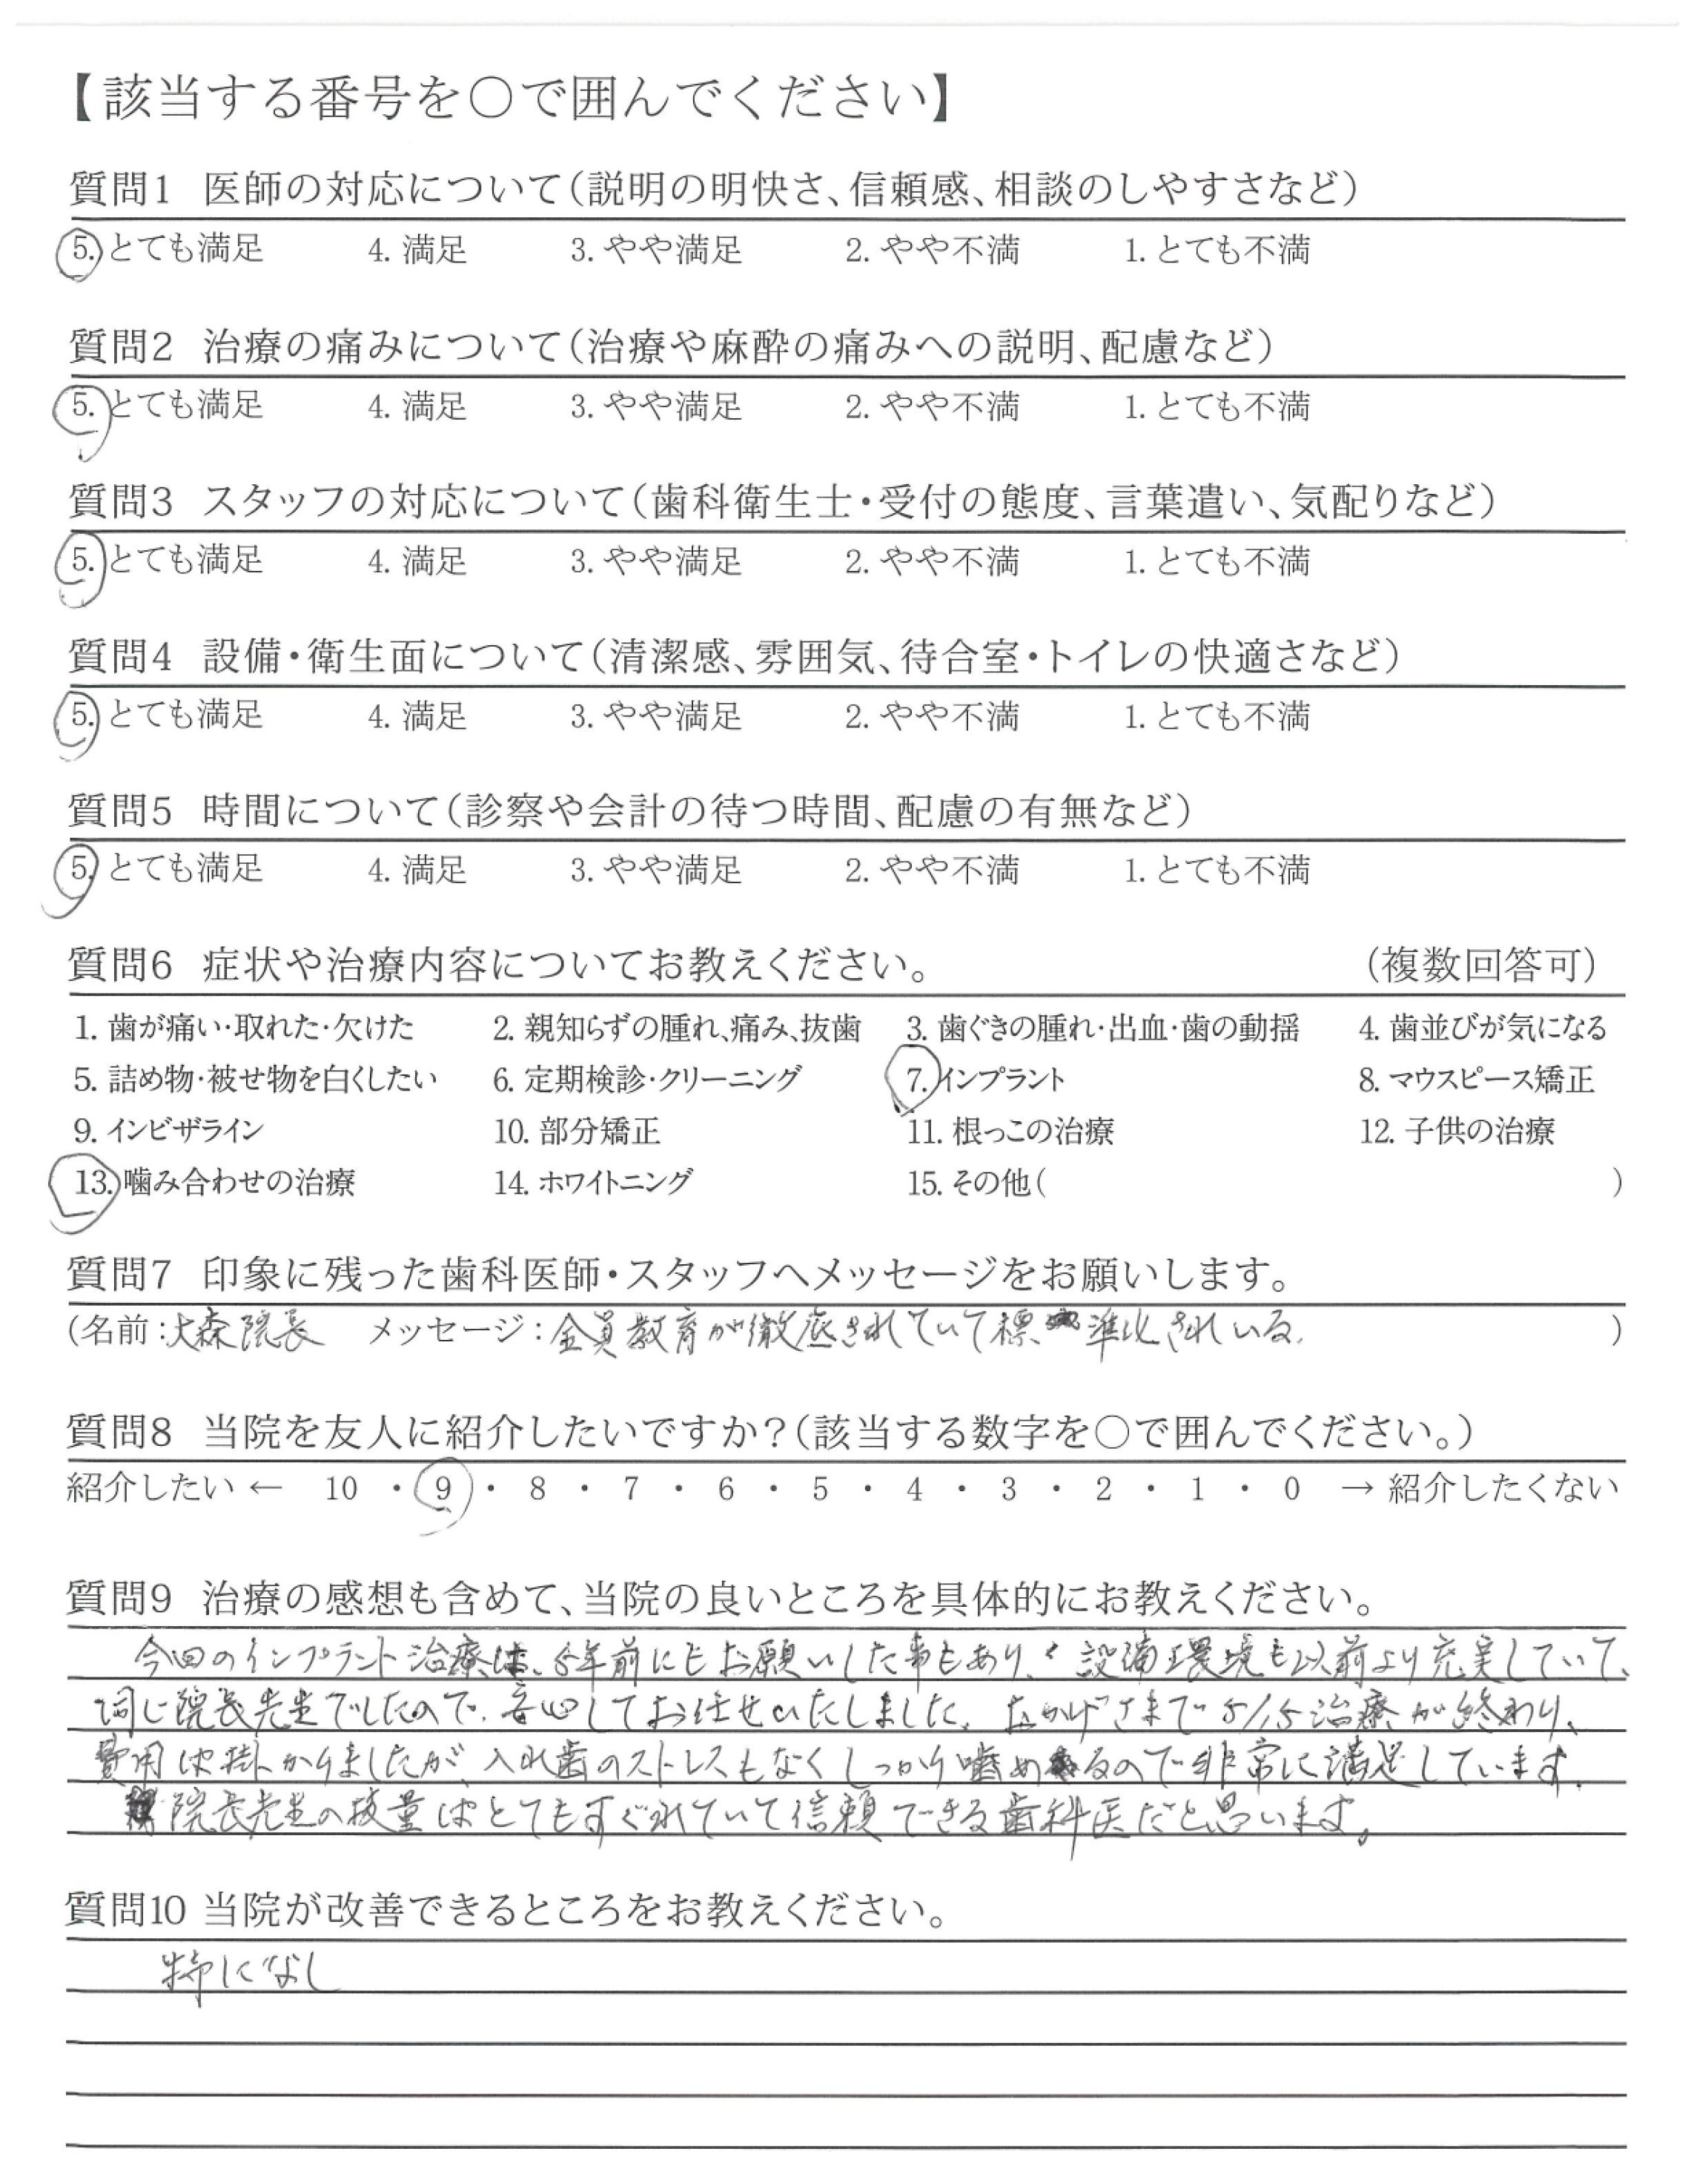 【該当する番号を○で囲んでください】
質問1 医師の対応について(説明の明快さ、信頼感、相談のしやすさなど)
5. とても満足 4. 満足 3. やや満足 2. やや不満 1. とても不満
質問2 治療の痛みについて(治療や麻酔の痛みへの説明、配慮など)
5. とても満足 4. 満足 3. やや満足 2. やや不満 1. とても不満
質問3 スタッフの対応について(歯科衛生士・受付の態度、言葉遣い、気配りなど)
5. とても満足 4. 満足 3. やや満足 2. やや不満 1. とても不満
質問4 設備・衛生面について(清潔感、雰囲気、待合室・トイレの快適さなど)
5. とても満足 4. 満足 3. やや満足 2. やや不満 1. とても不満
質問5 時間について(診察や会計の待つ時間、配慮の有無など)
5. とても満足 4. 満足 3. やや満足 2. やや不満 1. とても不満
質問6 症状や治療内容についてお教えください。 (複数回答可)
1. 歯が痛い・取れた・欠けた 2. 親知らずの腫れ、痛み、抜歯 3. 歯ぐきの腫れ・出血・歯の動揺 4. 歯並びが気になる
5. 詰め物・被せ物を白くしたい 6. 定期検診・クリーニング 7. インプラント 8. マウスピース矯正
9. インビザライン 10. 部分矯正 11. 根っこの治療 12. 子供の治療
13. 噛み合わせの治療 14. ホワイトニング 15. その他( )
質問7 印象に残った歯科医師・スタッフへメッセージをお願いします。
(名前:大森院長 メッセージ:全員教育が徹底されていて標準化されいる. )
質問8 当院を友人に紹介したいですか?(該当する数字を○で囲んでください。)
紹介したい ← 10 ・ 9 ・ 8 ・ 7 ・ 6 ・ 5 ・ 4 ・ 3 ・ 2 ・ 1 ・ 0 → 紹介したくない
質問9 治療の感想も含めて、当院の良いところを具体的にお教えください。
今回のインプラント治療は、5年前にもお願いした事もあり、設備環境も以前より充実していて、
同じ院長先生でしたので、安心してお任せいたしました。おかげさまで5/15治療が終わり、
費用は掛かりましたが、入れ歯のストレスもなくしっかり噛めるので非常に満足しています.
院長先生の技量はとてもすぐれていて信頼できる歯科医だと思います。
質問10 当院が改善できるところをお教えください。
特になし